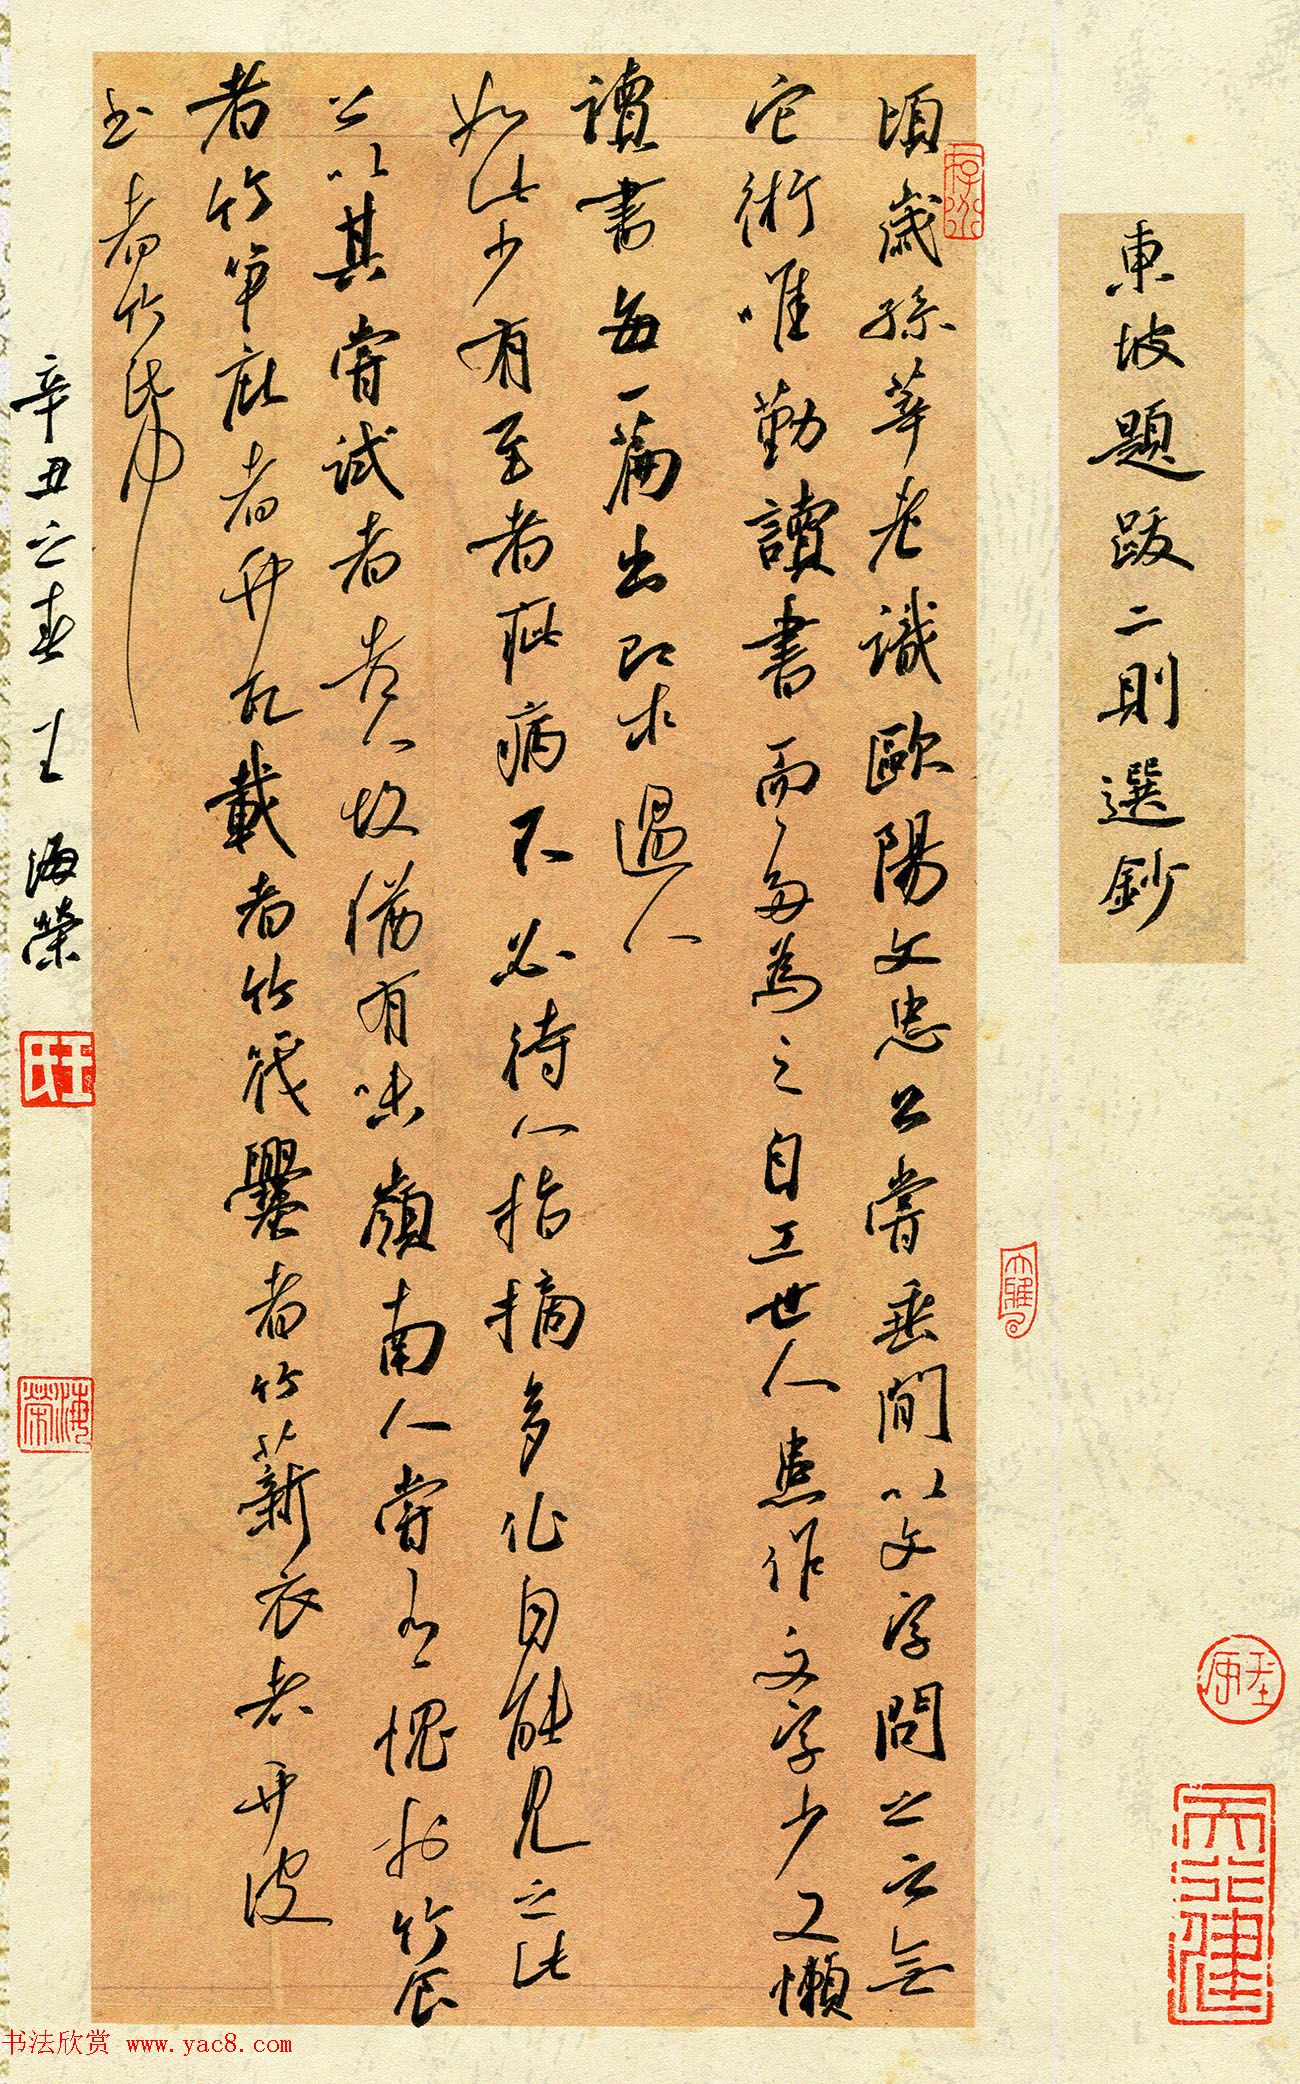 東坡題跋二則選鈔
頃歲孫莘老識歐陽文忠公嘗乘間以文字問之云無
它術唯勤讀書而多為之自工世人患作文字少又懶
讀書每一篇出即求過人
如此少有至者疵病不必待人指摘多作自能見之此
公以其嘗試者告人故猶有味嶺南人當有愧於竹食
者竹筍庇者竹瓦載者竹筏爨者竹薪衣者竹皮
书者竹紙
辛丑之春 王海榮
王氏
海榮
天行健
书法欣赏 www.yac8.com